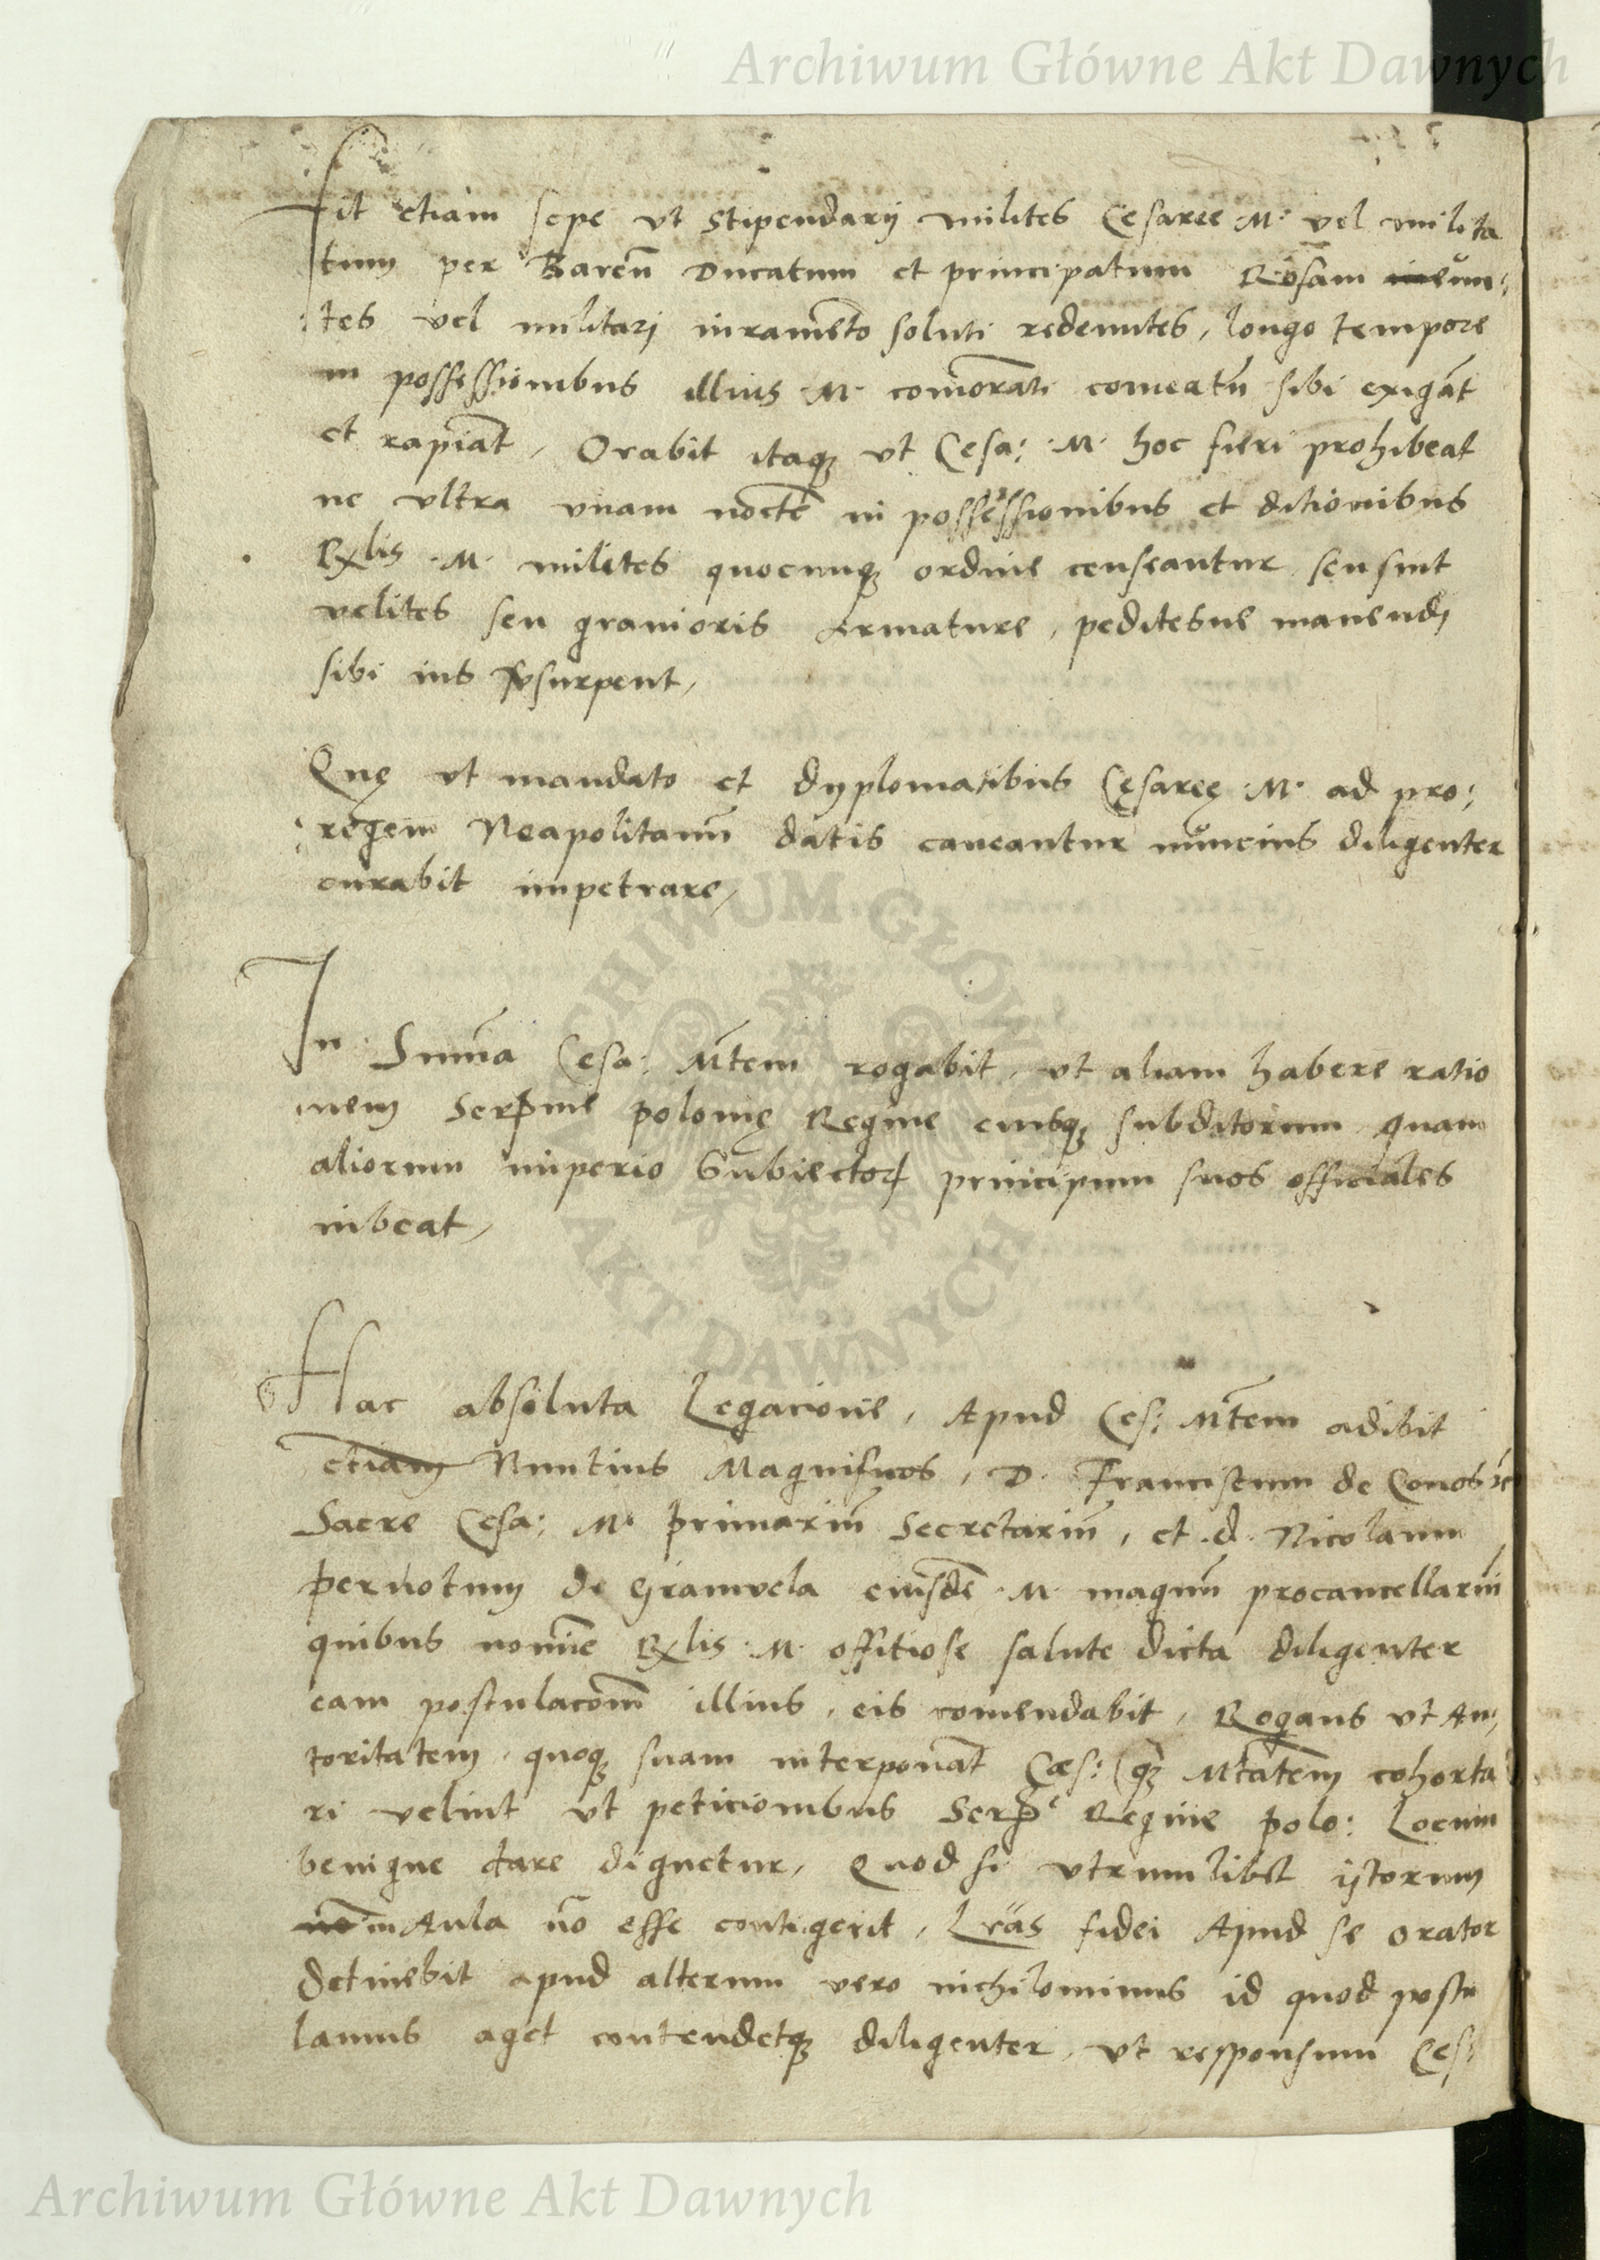 Archiwum Główne Akt Dawnych
Fit etiam sepe vt stipendarij milites Cesaree M. vel milita
tum per Baren̄ Ducatum et principatum Rosan̄
tes vel militari iurame̅to soluti redeuntes, longo tempore
in possessionibus illius M. com̅orati com̅eatu̅ sibi exiga̅t
et rapia̅t, Orabit itaq; vt Cesa: M. hoc fieri prohibeat
ne vltra vnam nocte̅ in possessionibus et ditionibus
Rxlis M. milites quocunq; ordine censeantur seu sint
velites seu grauioris Armature, peditesue manendi
sibi ius vsurpent,
Quę vt mandato et dyplomatibus Cęsareę M. ad pro:
regem Neapolitanu̅ datis caueantur nuncius diligenter
curabit impetrare,
In Sum̅a Cesa: Mtem rogabit, vt aliam habere ratio
nem Serpme polonię Regine eiusq; subditorum quam
aliorum imperio Subiector principum suos officiales
iubeat,
Hac absoluta Legacione, Apud Ces: Mtem adibit
etiam Nuntius Magnificos, D. Franciscum de Couos
Sacre Cesa: M. primariu̅ Secretariu̅, et d. Nicolaum
pernotum de Granuela eiusde̅ M. magnu̅ procancellariu̅
quibus nomi̅e Rxlis M. offitiose salute dicta diligenter
eam postulaco̅m illius, eis com̅endabit, Rogans vt Au:
toritatem quoq; suam interpona̅t Cæs: q; Mtatem cohorta
ri velint vt peticionibus Serpe Regine polo: Locum
benigne dare dignetur, Quod si vtrumlibet istorum
in Aula no̅ esse contigerit, Lr̅as fidei Apud se orator
detinebit apud alterum vero nichilominus id quod postu
lamus aget contendetq; diligenter, vt responsum Ces:
ARCHIWUM GŁÓWNE
AKT DAWNYCH
Archiwum Główne Akt Dawnych